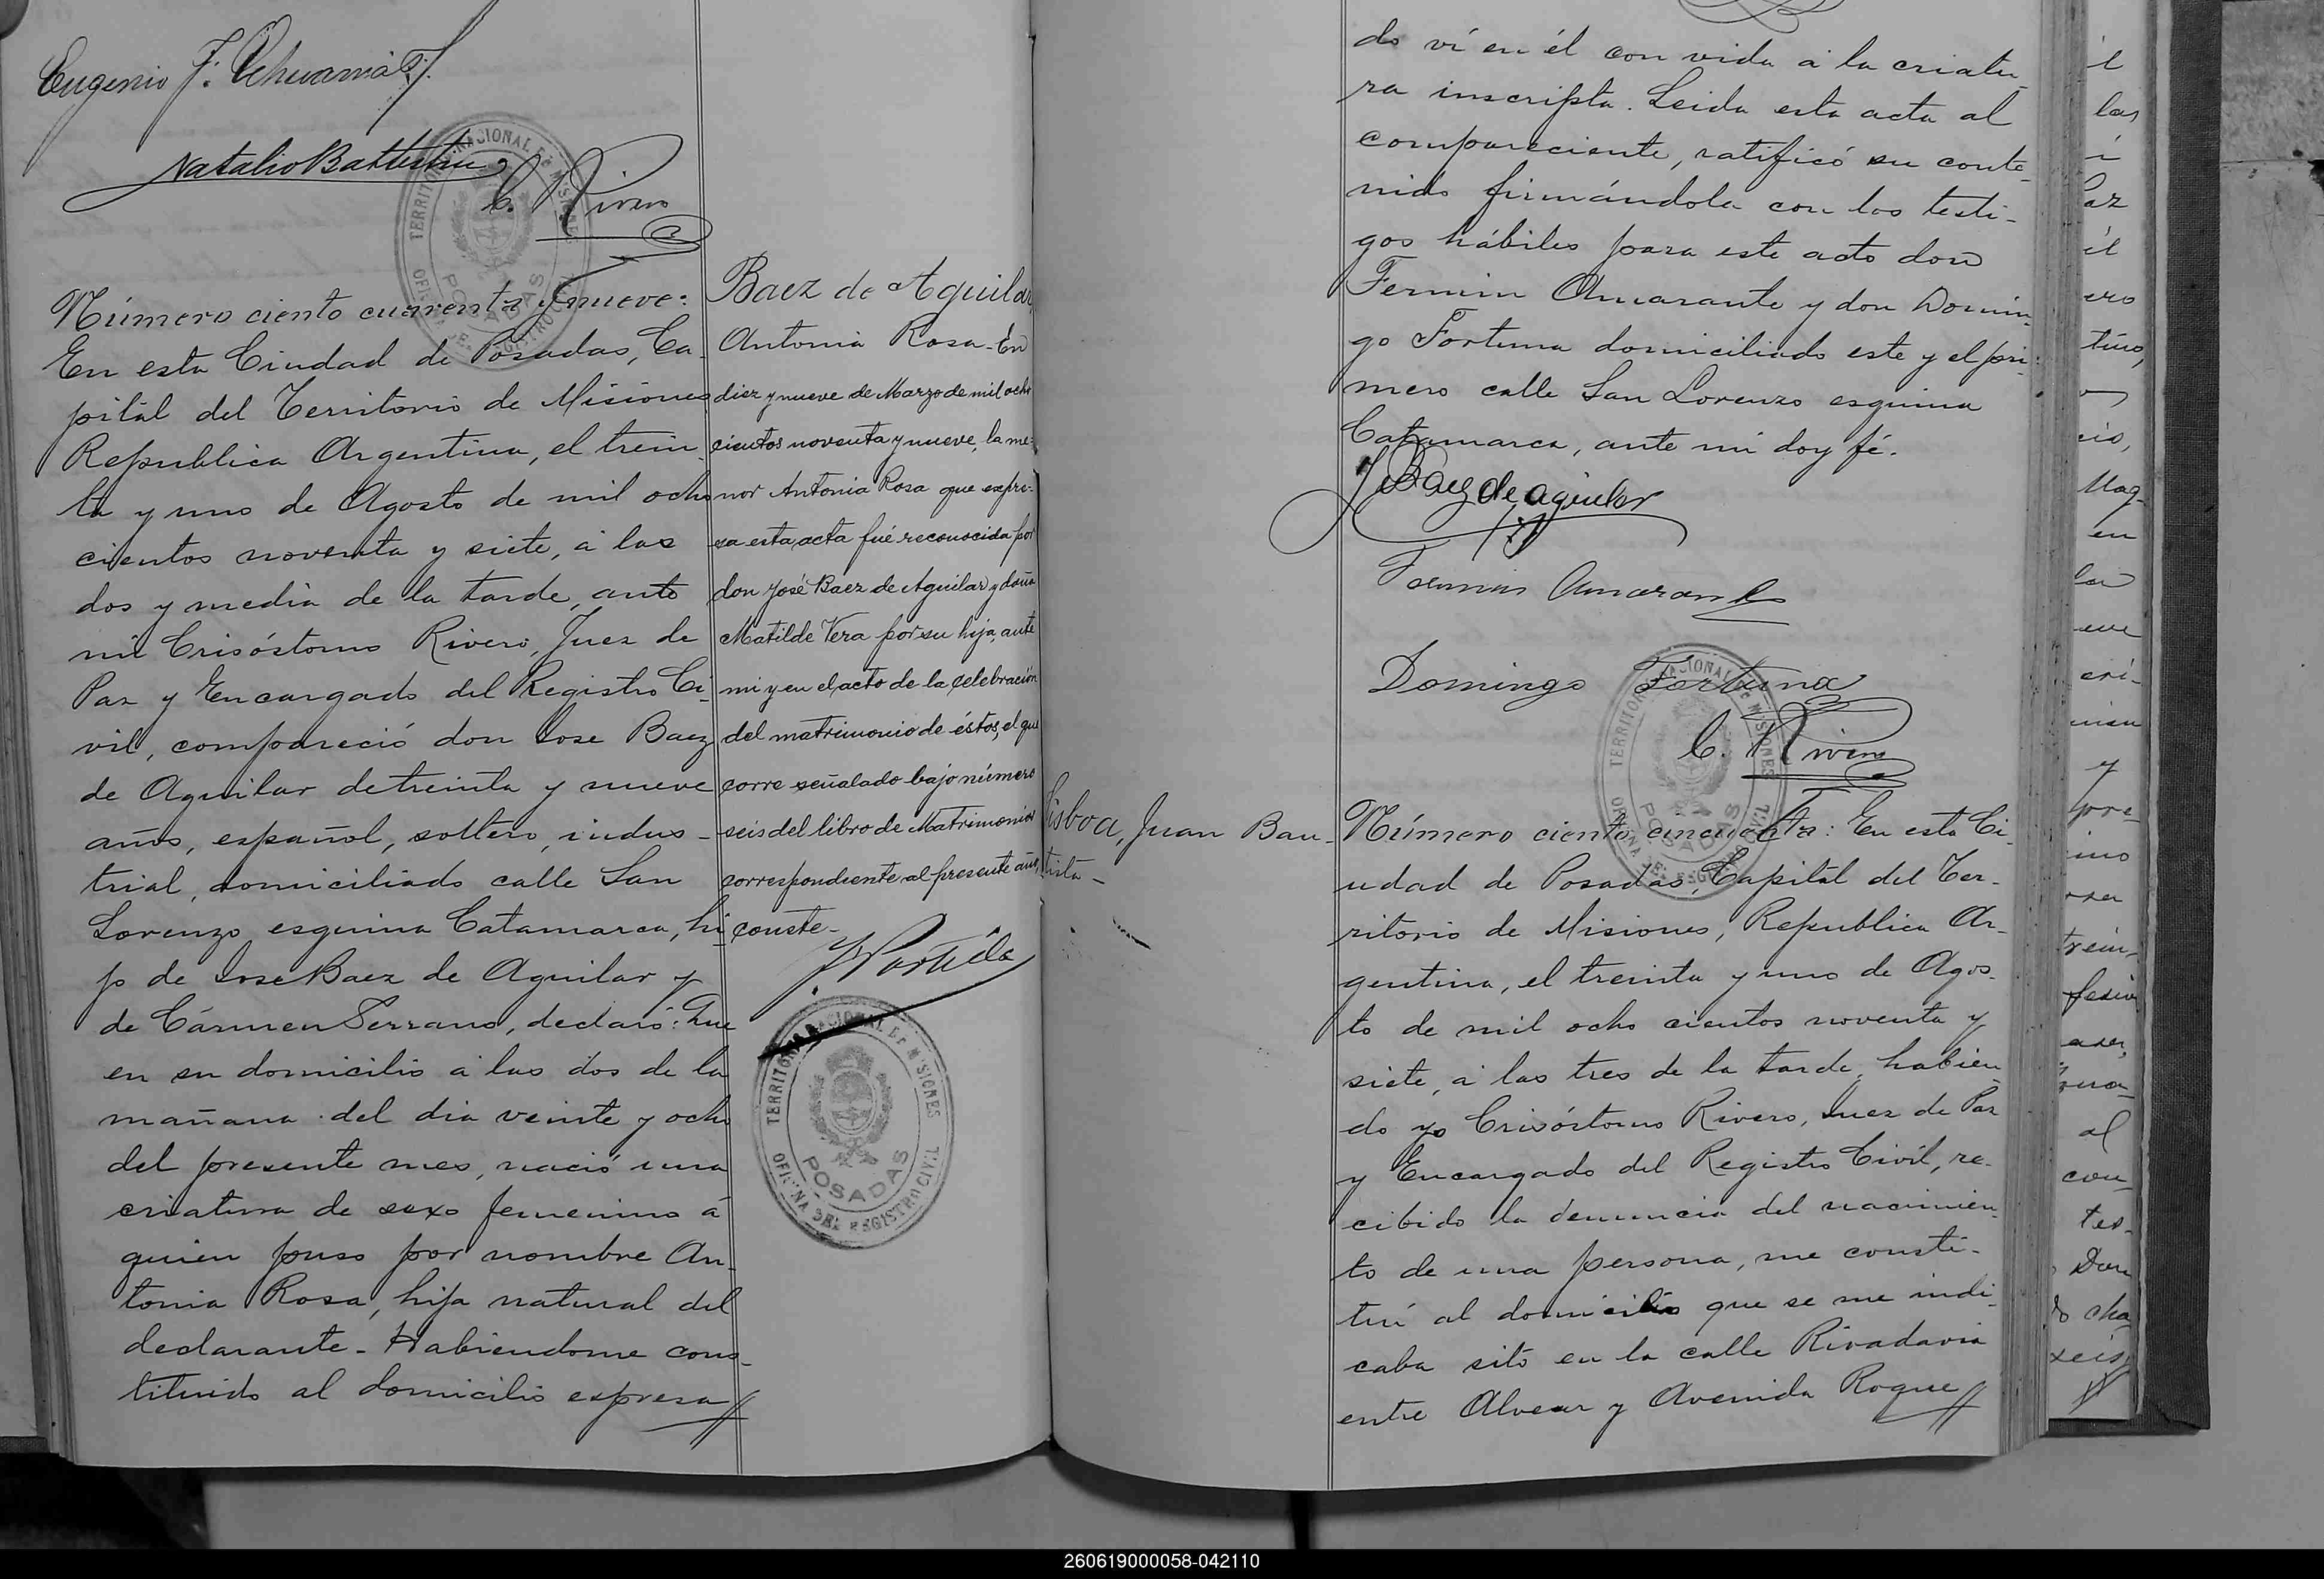 Eugenio F.
Natalio Battistu
C. Rivero
Número ciento cuarenta y nueve:
En esta Ciudad de Posadas, Ca-
pital del Territorio de Misiones
Republica Argentina, el trein-
ta y uno de Agosto de mil ocho
cientos noventa y siete, á las
dos y media de la tarde, ante
mi Crisóstomo Rivero, Juez de
Paz y Encargado del Registro Ci-
vil, compareció don Jose Baez
de Aguilar de treinta y nueve
años, español, soltero, indus-
trial, domiciliado calle San
Lorenzo esquina Catamarca, hi
jo de Jose Baez de Aguilar y
de Cármen Serrano, declaró: Que
en su domicilio á las dos de la
mañana del dia veinte y ocho
del presente mes, nació una
criatura de sexo femenino á
quien puso por nombre An-
tonia Rosa, hija natural del
declarante - Habiendome cons-
tituido al domicilio expresa
Baez de Aguilar,
Antonia Rosa - En
diez y nueve de Marzo de mil ocho
cientos noventa y nueve, la me-
nor Antonia Rosa que expre-
sa esta acta fué reconocida por
don José Baez de Aguilar y doña
Matilde Vera por su hija, ante
mi y en el acto de la celebración
del matrimonio de éstos, el que
corre señalado bajo número
seis del libro de Matrimonios
correspondiente al presente año,
conste -
TERRITORIO NACIONAL DE MISIONES
POSADAS
OFICINA DEL REGISTRO CIVIL
do ví en él con vida á la criatu
ra inscripta. Leida esta acta al
compareciente, ratificó su conte-
nido firmándola con los testi-
gos hábiles para este acto don
Fermin Amarante y don Domin-
go Fortuna domiciliado este y el pri-
mero calle San Lorenzo esquina
Catamarca, ante mi doy fé.
J Baez de aguilar
Fermin Amarante
Domingo Fortuna
C. Rivero
Lisboa, Juan Bau-
tista -
Número ciento cincuenta: En esta Ci-
udad de Posadas, Capital del Ter-
ritorio de Misiones, Republica Ar-
gentina, el treinta y uno de Agos-
to de mil ocho cientos noventa y
siete, á las tres de la tarde, habien
do yo Crisóstomo Rivero, Juez de Paz
y Encargado del Registro Civil, re-
cibido la denuncia del nacimien-
to de una persona, me consti-
tuí al domicilio que se me indi-
caba sito en la calle Rivadavia
entre Alvear y Avenida Roque
260619000058-042110